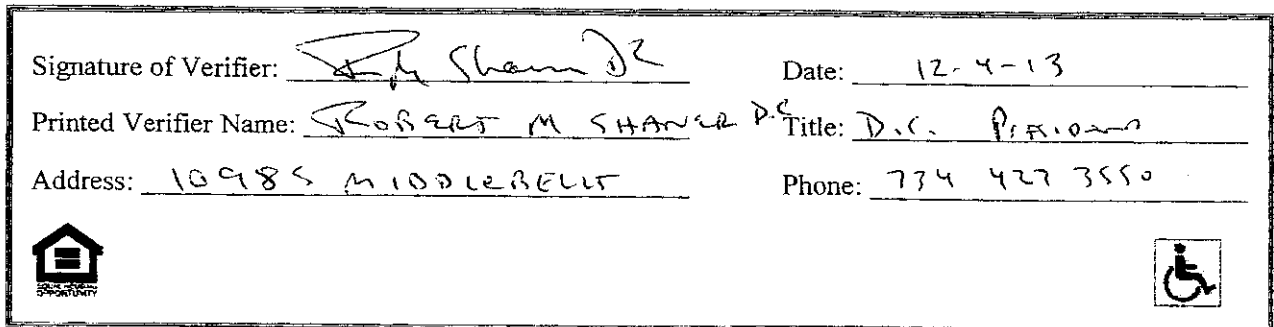 Signature of Verifier: Shaner DC Date: 12-4-13
Printed Verifier Name: ROBERT M SHANER D.C Title: D.C.
Address: 10985 MIDDLEBELT Phone: 734 427 3550
EQUAL HOUSING
OPPORTUNITY